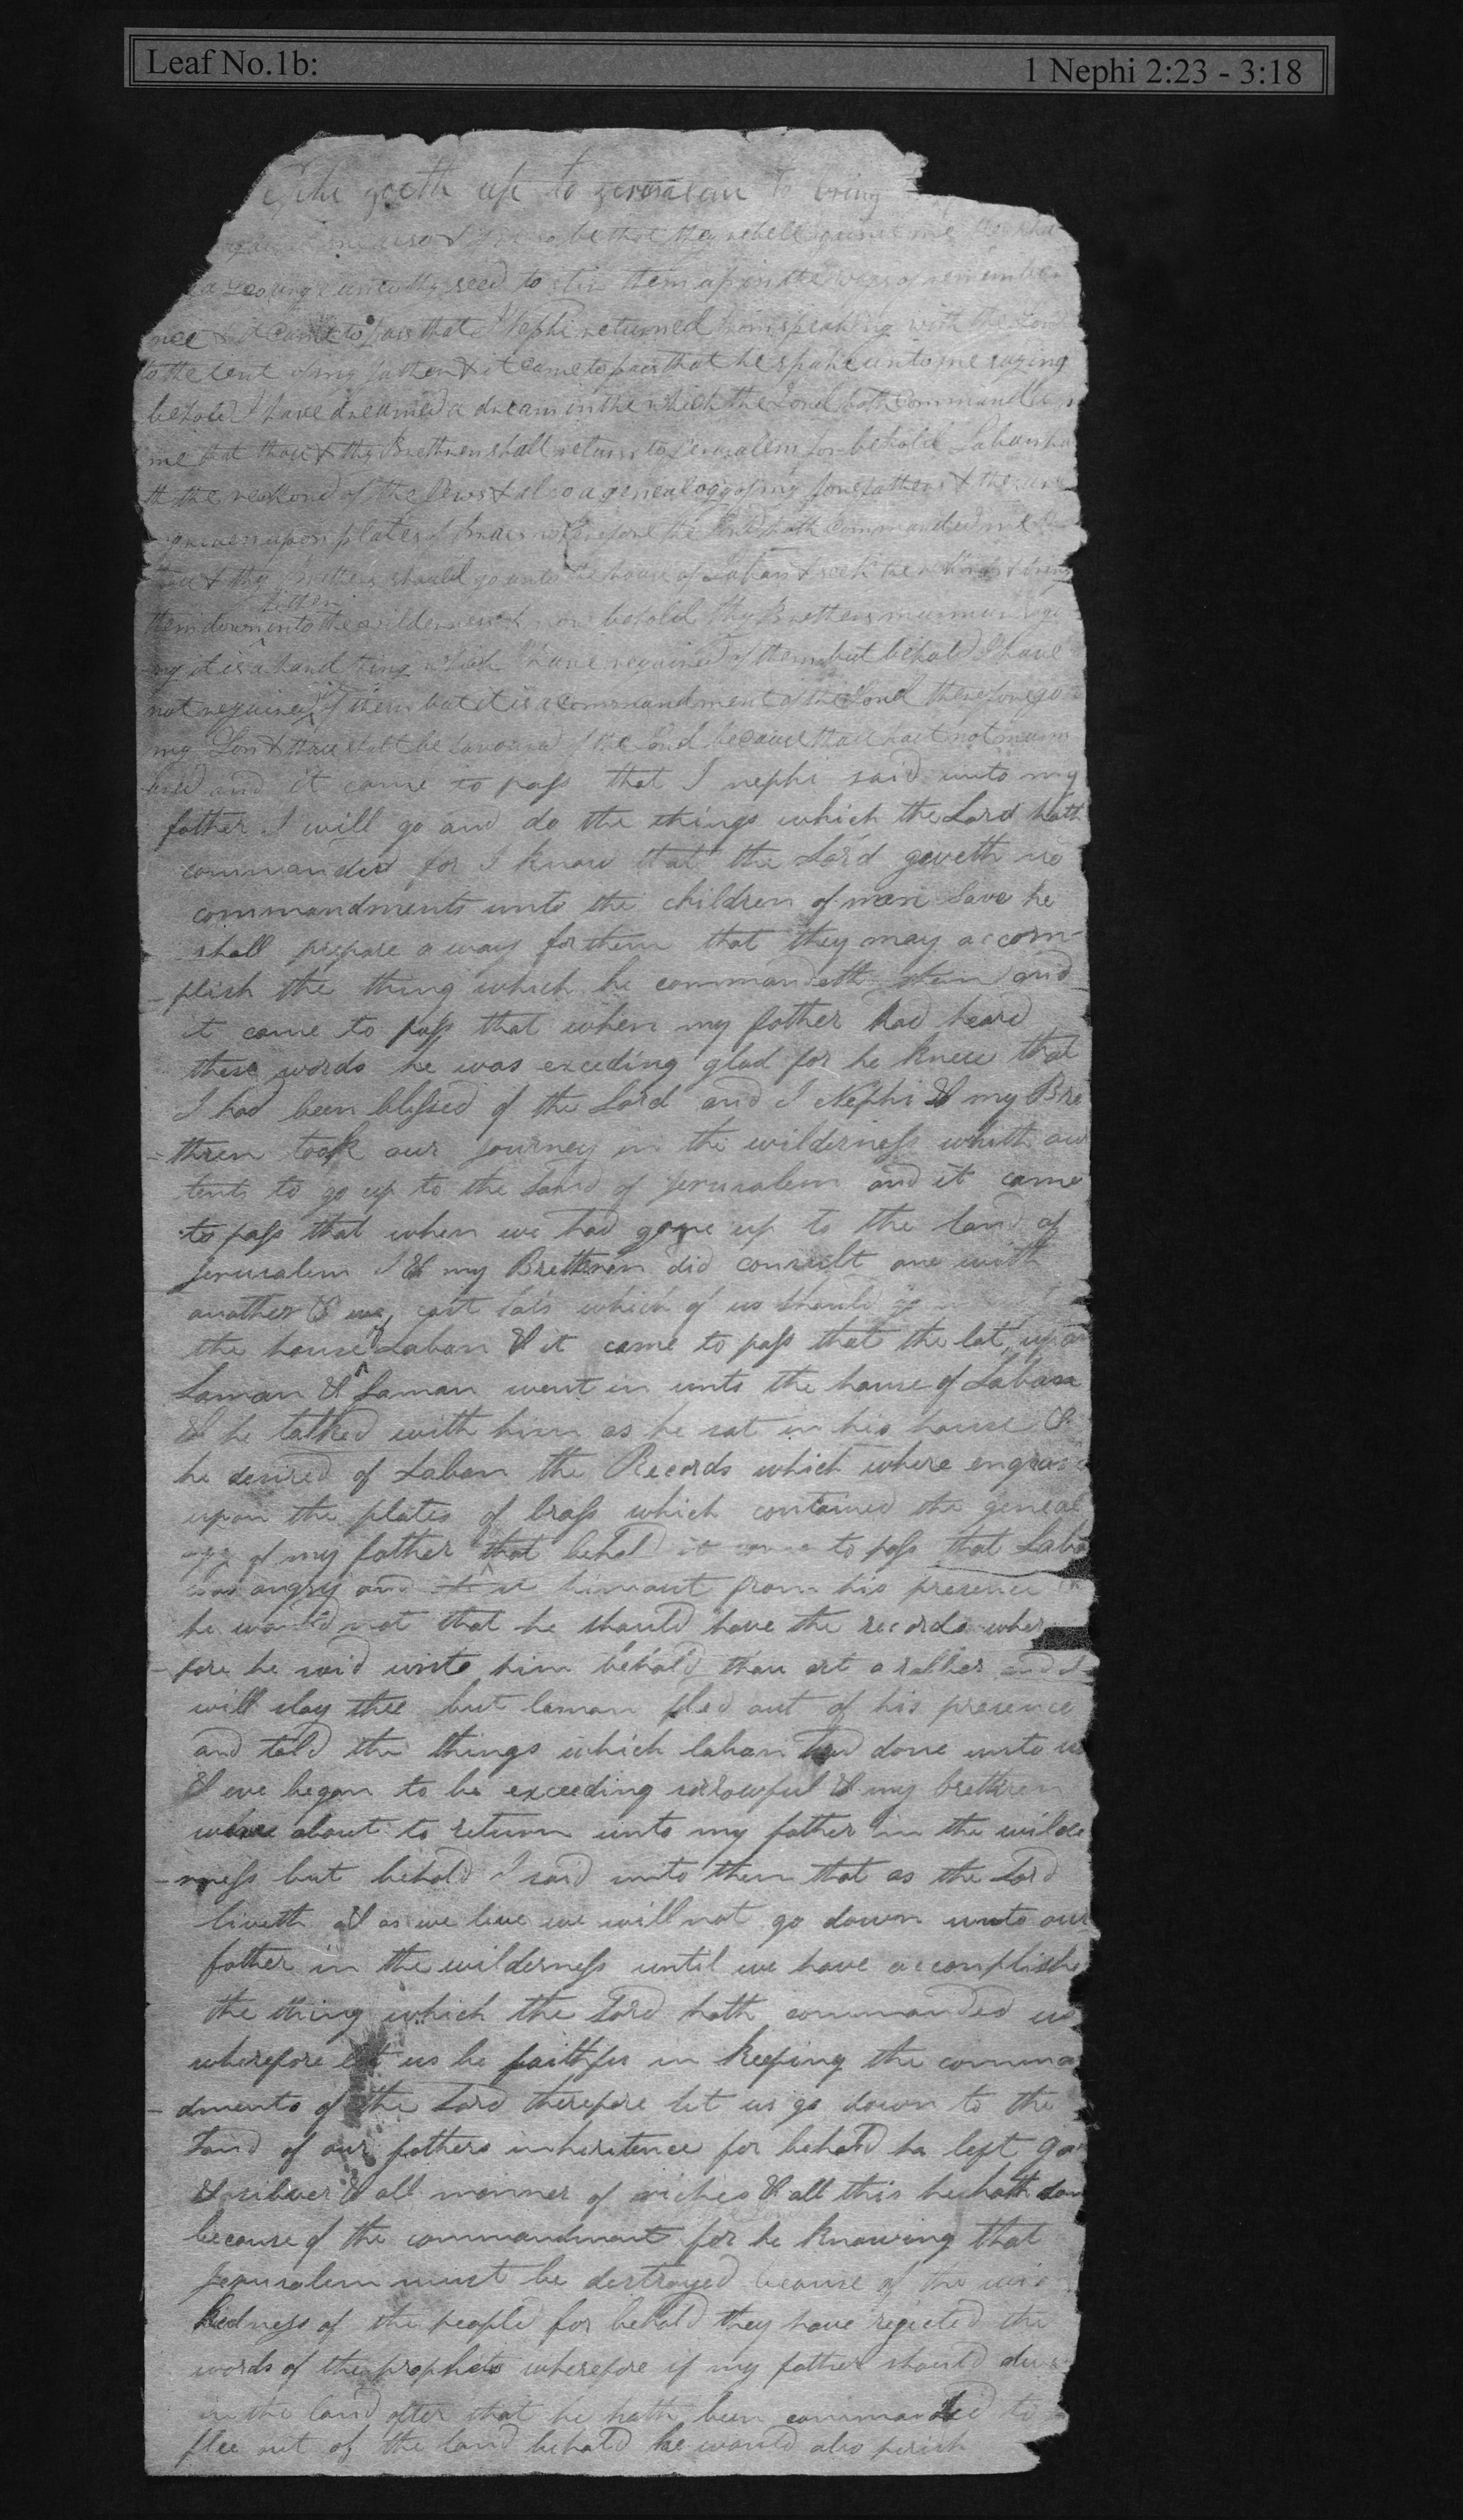 Leaf No.1b:
1 Nephi 2:23 - 3:18
goeth up to Jerusalem to bring
be that they rebell me
seed to stir them up in the ways of remembra
nce & it came to pass that I Nephi returned from speaking with the Lord
to the tent of my father & it came to pass that he spake unto me saying
behold I have dreamed a dream in the which the Lord hath commanded
me that thou & thy Brethren shall return to Jerusalem for behold Laban ha
th the reckord of the Jews & also a genealogy of my forefathers & they are
upon plates of brass wherefore the Lord hath commanded me
thou & thy brothers should go unto the house of Laban & seek the reckords & bring
them down hither into the wilderness & now behold thy Brothers murmur
it is a hard thing which I have required of them but behold I have
not required it of them but it is a commandment of the Lord therefore go
my Son & thou shalt be favoured of the Lord because thou hast not murm
and it came to pass that I nephi said unto my
father I will go and do the things which the Lord hath
commanded for I know that the Lord giveth no
commandments unto the children of men save he
shall prepare a way for them that they may accom-
-plish the thing which he commandeth them and
it came to pass that when my father had heard
these words he was exceding glad for he knew that
I had been blessed of the Lord and I Nephi & my Bre
=thren took our journey in the wilderness whith our
tents to go up to the land of Jerusalem and it came
to pass that when we had gone up to the land of
Jerusalem I & my Bretheren did consult one with
another & we cast lots which of us should go
the house of Laban & it came to pass that the lot upon
Laman & Laman went in unto the house of Laban
& he talked with him as he sat in his house &
he desired of Laban the Records which where engrav
upon the plates of brass which contained the geneal
-ogy of my father that behold it came to pass that Laba
was angry and him out from his presence
he would not that he should have the records wher
-fore he said unto him behold thou art a robber and I
will slay thee but laman fled out of his presence
and told the things which laban had done unto us
& we began to be exceeding sorrowful & my brethren
were about to return unto my father in the wilde
-rness but behold I said unto them that as the Lord
liveth & as we live we will not go down unto our
father in the wilderness until we have accomplishe
the thing which the Lord hath commanded us
wherefore let us be faithful in keeping the comma
-dments of the Lord therefore let us go down to the
land of our fathers inheritence for behold he left go
& silver & all manner of riches & all this he hath don
because of the commandment for he knowing that
Jerusalem must be destroyed because of the wic
kedness of the people for behold they have rejected the
words of the prophets wherefore if my father should dwe
in the land after that he hath been commanded to
flee out of the land behold he would also perish